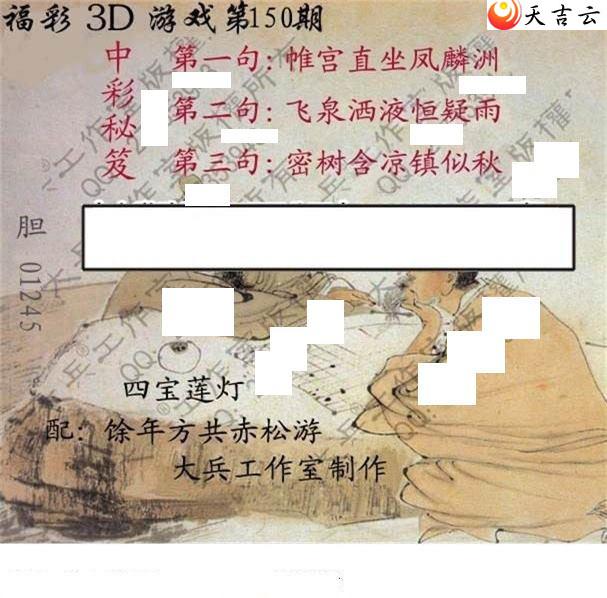 福彩 3D 游戏第150期
天吉云
中彩秘笈
第一句：帷宫直坐凤麟洲
第二句：飞泉洒液恒疑雨
第三句：密树含凉镇似秋
胆 01245
四宝莲灯
配：馀年方共赤松游
大兵工作室制作